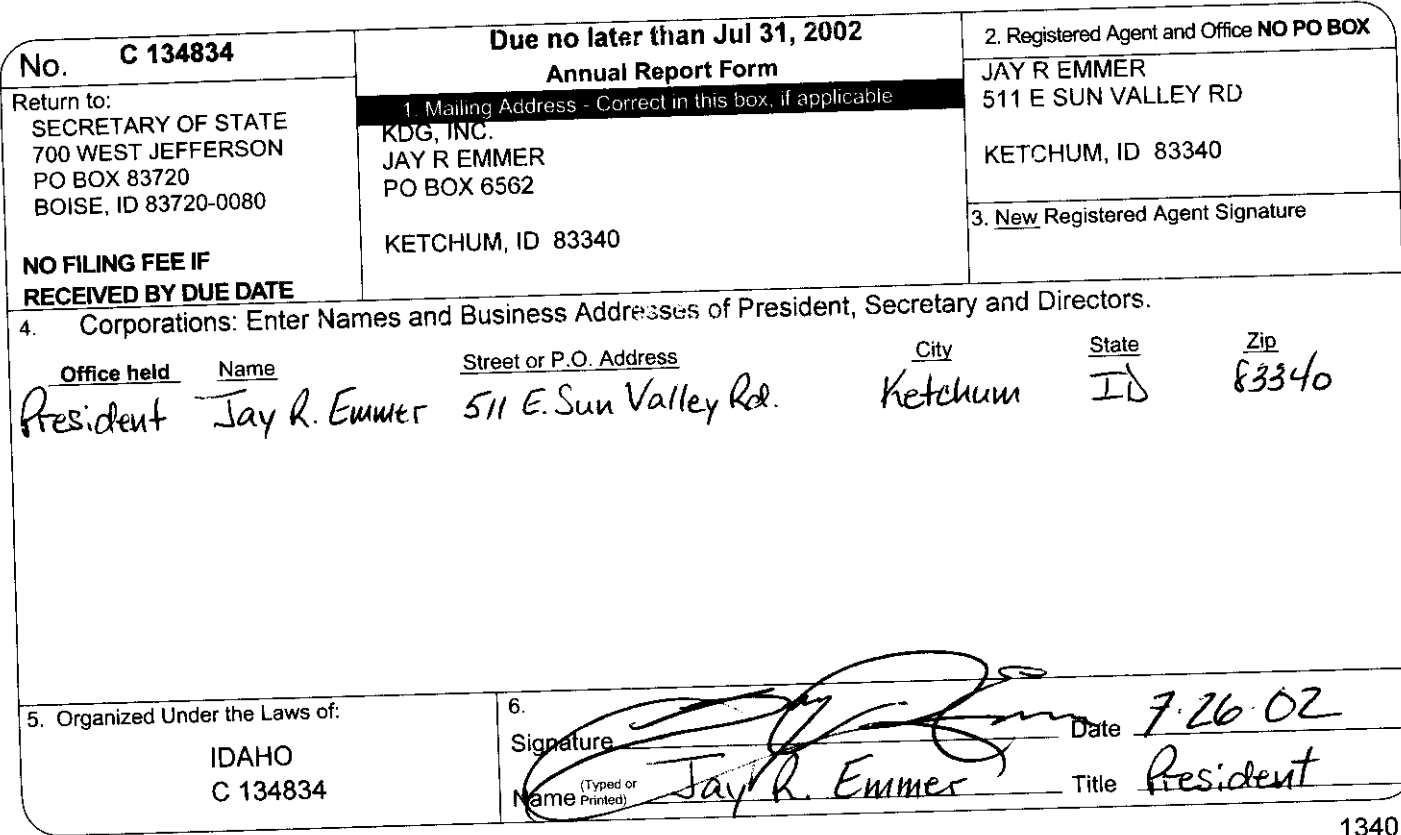 No. C 134834
Return to:
SECRETARY OF STATE
700 WEST JEFFERSON
PO BOX 83720
BOISE, ID 83720-0080
NO FILING FEE IF
RECEIVED BY DUE DATE
Due no later than Jul 31, 2002
Annual Report Form
1. Mailing Address - Correct in this box, if applicable
KDG, INC.
JAY R EMMER
PO BOX 6562
KETCHUM, ID 83340
2. Registered Agent and Office NO PO BOX
JAY R EMMER
511 E SUN VALLEY RD
KETCHUM, ID 83340
3. New Registered Agent Signature
4. Corporations: Enter Names and Business Addresses of President, Secretary and Directors.
Office held Name Street or P.O. Address City State Zip
President Jay R. Emmer 511 E. Sun Valley Rd. Ketchum ID 83340
5. Organized Under the Laws of:
IDAHO
C 134834
6.
Signature Date 7.26.02
Name (Typed or Printed) Jay R. Emmer Title President
1340